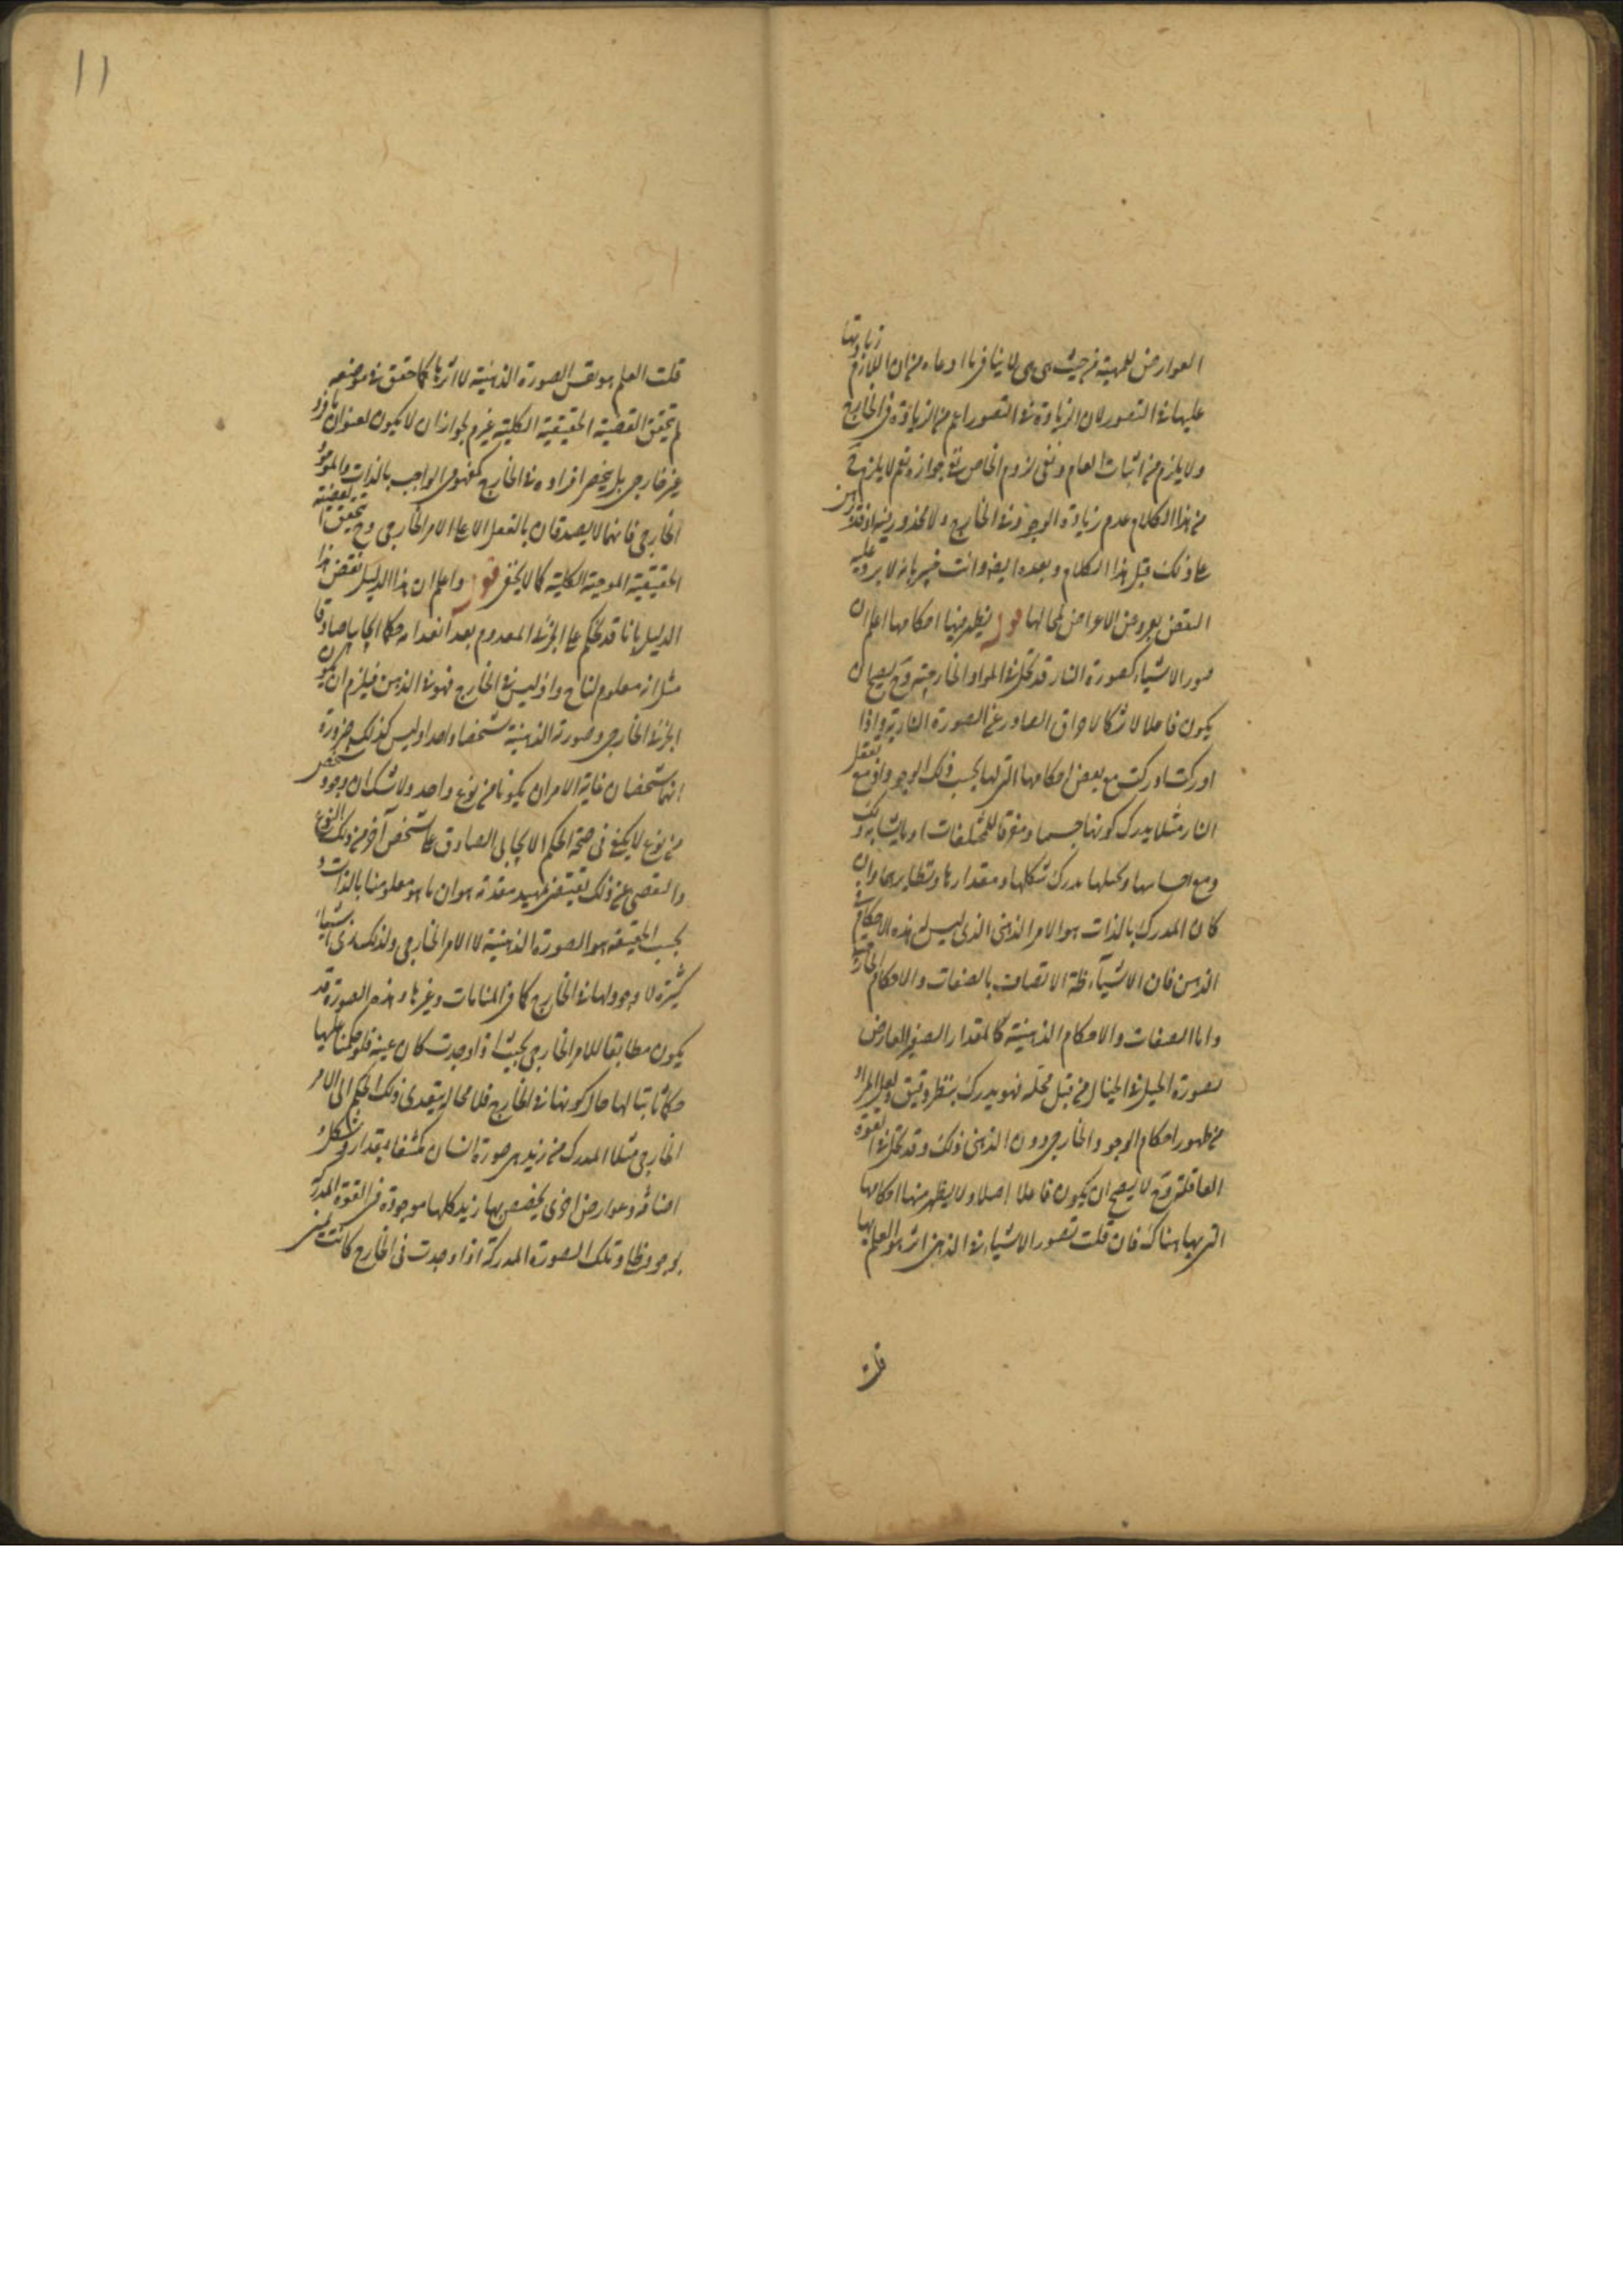 العوارض للمهية من حيث هي هي لا ينافي ما ادعاه من ان اللازم زيادتها
عليها في التصور لان الزيادة في التصور اعم من الزيادة في الخارج
ولا يلزم من اثبات العام ونفي لزوم الخاص جوازه نعم لا يلزم
من هذا الكلام عدم زيادة الوجود في الخارج ولا محذور فيه اذ
على ذلك قبل هذا الكلام وبعده ايضا وانت خبير بانه لا يرد عليه
النقض بعروض الاعراض لمحالها قوله يظهر منها احكامها اعلم ان
صور الاشياء كصورة النار قد تحل في المواد الخارجية وح يصح ان
يكون فاعلا لاشكالا حراق الصادر عن الصورة النارية واذا
ادركت ادركت مع بعض احكامها التي لها بحسب ذلك الوجود فمع تعقل
النار مثلا يدرك كونها جسما ومفرقا للمختلفات او ما يشابه ذلك
ومع احساسها وتخيلها يدرك شكلها ومقدارها ونظايرهما وان
كان المدرك بالذات هو الامر الذهني الذي ليس له هذه الاحكام في
الذهن فان الاشياء الاتصاف بالصفات والاحكام الخارجية
واما الصفات والاحكام الذهنية كالمقدار الصغير العارض
لصورة الجبل في الخيال من قبل محله فهو يدرك بنظر دقيق ولعل المراد
من ظهور احكام الوجود الخارجي دون الذهني ذلك وقد تحل في القوة
العاقلة وح لا يصح ان يكون فاعلا اصلا ولا يظهر منها احكامها
التي بها هناك فان قلت تصور الاشياء في الذهن اثر هو العلم بها
قلت
١١
قلت العلم هو نفس الصورة الذهنية لا اثرها كما حقق في موضعه
لم تتحقق القضية الحقيقية الكلية غير لجواز ان لا يكون لعنوان ما فرد
غير خارجي بل ينحصر افراده في الخارج كمفهومي الواجب بالذات والموجود
الخارجي فانهما لا يصدقان بالفعل الا على الامر الخارجي وح تتحقق القضية
الحقيقية الموجبة الكلية كما لا يخفى قوله واعلم ان هذا الدليل نقض هذا
الدليل بانا قد نحكم على الجزئي المعدوم بعد انعدامه حكما ايجابيا صادقا
مثل انه معلوم لنا ح واذ ليس في الخارج فهو في الذهن فيلزم ان يكون
الجزئي الخارجي وصورته الذهنية شخصا واحدا وليس كذلك ضرورة
انهما شخصان غاية الامر ان يكونا من نوع واحد ولا شك ان وجود شخص
من نوع لا يكفي في صحة الحكم الايجابي الصادق على شخص آخر من ذلك النوع
والتفصي عن ذلك يقتضي تمهيد مقدمة هو ان ما هو معلومنا بالذات
بحسب الحقيقة هو الصورة الذهنية لا الامر الخارجي ولذلك نرى اشياء
كثيرة لا وجود لها في الخارج كما في المنامات وغيرها وهذه الصورة قد
يكون مطابقا للامر الخارجي بحيث اذا وجدت كان عينه فلو حكمنا عليها
حكما ثابتا لها حال كونها في الخارج فلا محالة يتعدى ذلك الحكم الى الامر
الخارجي مثلا المدرك من زيد هي صورة انسان مكتنفا بمقدار وشكل و
اضافة وعوارض اخرى يختص بها زيد كلها موجودة في القوة المدركة
بوجود ظلي وتلك الصورة المدركة اذا وجدت في الخارج كانت